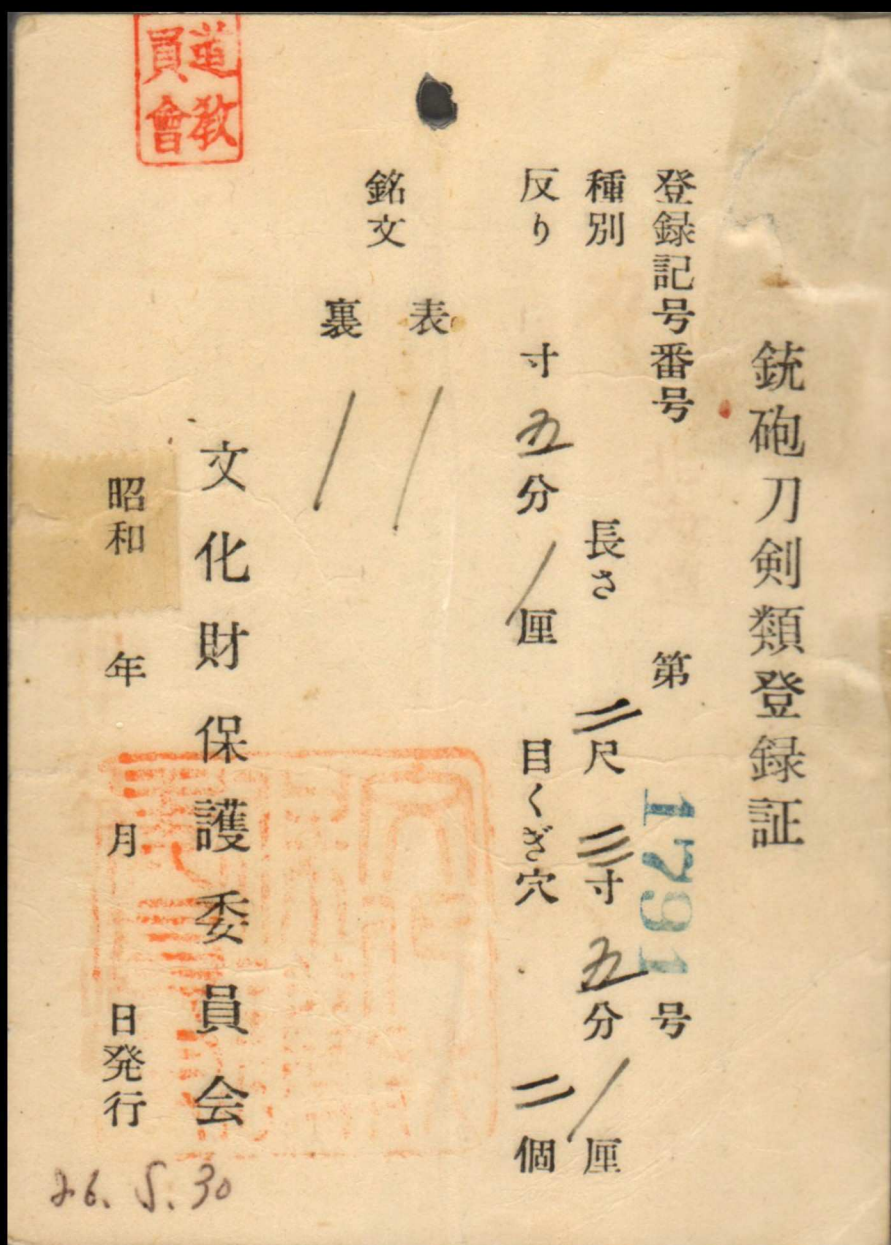 銃砲刀剣類登録証
登録記号番号 第 1791 号
種別 長さ 二尺 三寸 五分 / 厘
反り 寸 五分 / 厘 目くぎ穴 二 個
銘文
表 /
裏 /
文化財保護委員会
昭和 年 月 日発行
26. 5. 30
道教
員會